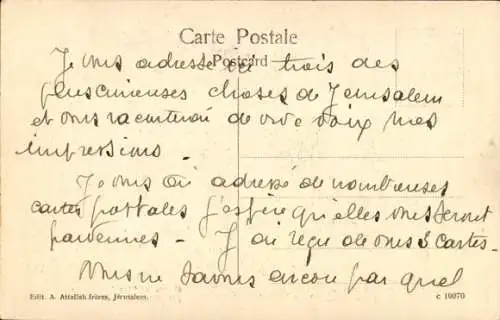 Carte Postale
Postcard
Je vous adresse ici trois des
plus curieuses choses de Jerusalem
et vous raconterai de vive voix mes
impressions.
Je vous ai adressé de nombreuses
cartes postales j'espère qu'elles vous seront
parvennes - J'ai reçu de vous 3 cartes.
Nous ne savons encore par quel
Edit. A. Attallah frères, Jérusalem.
c 10070